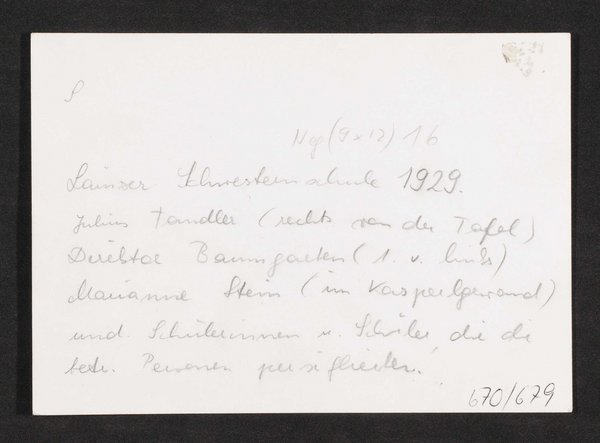 S
Neg (9x12) 16
Lainzer Schwesternschule 1929.
Julius Tandler (rechts von der Tafel)
Direktor Baumgarten (1. v. links)
Marianne Stein (im Kasperlgewand)
und Schülerinnen u. Schüler, die die
betr. Personen persiflieren.
670/679